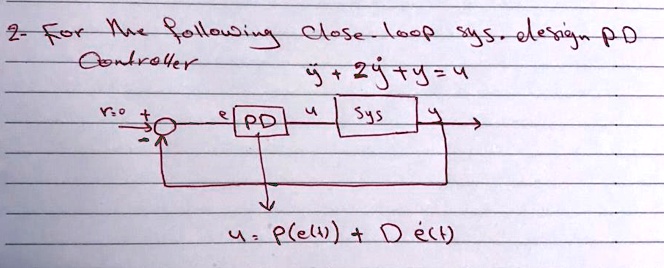 2- For the following close-loop sys. design PD
Controller
ÿ + 2ẏ + y = u
r=0 + e PD u Sys y
-
u = P(e(t)) + D ė(t)